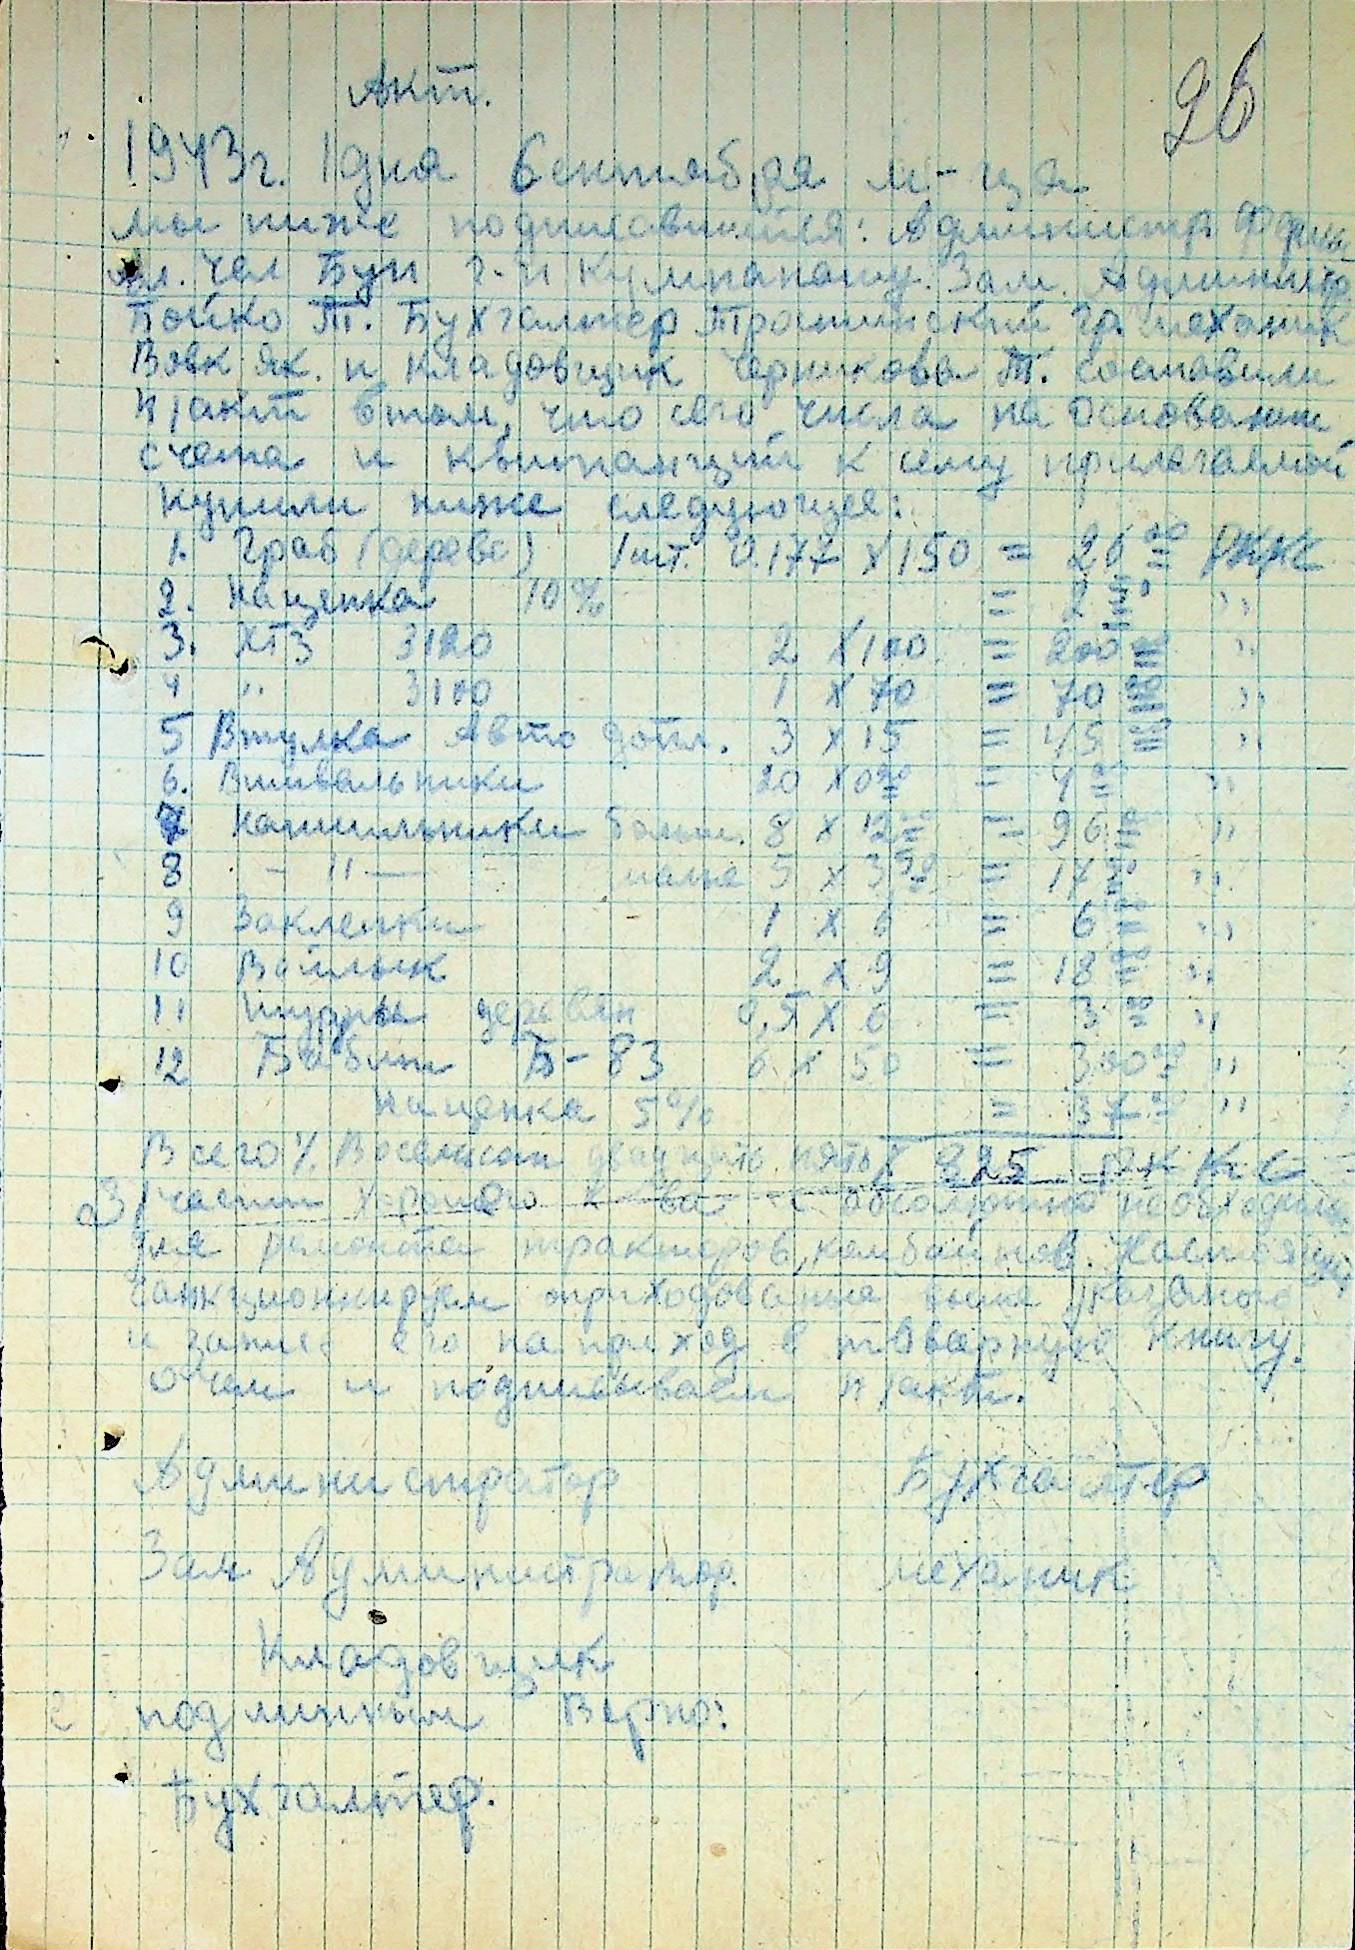 26
Акт.
1943 г. 1 дня Сентября м-ца
мы ниже подписавшийся: Администр.
Бун г-н Кумпанашу. Зам. Администр.
Бойко Т. Бухгалтер Трошинский Гр. механик
Вовк Як. и кладовщик Черникова Т. составили
н/акт втом, что сего числа на основании
счета и квитанций к сему прилегаемой
купили ниже следующее:
1. Граб (дерево) 1 шт. 0.177 X 150 = 26 00 РККС
2. Наценка 10% = 2 "
3. ХТЗ 3120 2 X 100 = 200 00 "
4 " 3100 1 X 70 = 70 00 "
5 Втулка Авто 3 X 15 = 45 00 "
6. Вшивальники 20 X 0 20 = 4 00 "
7 Напильники больш. 8 X 12 00 = 96 00 "
8 - " - малые 5 X 3,50 = 17 50 "
9 Заклепки 1 X 6 = 6 00 "
10 Войлок 2 X 9 = 18 00 "
11 Шурупы дерьвян 0,5 X 6 = 3 00 "
12 Бабит Б-83 6 X 50 = 300 00 "
Наценка 5% = 37 "
Всего Восемсот двадцать пять 825 РККС
З/части хорошего к-ва и абсолютно необходимы
для ремонта тракторов, комбайнов.
Санкционируем приходованые выше указаного
и запись его на приход в товарную книгу.
О чем и подписываем н/акт.
Администратор Бухгалтер
Зам Администратор. механик
Кладовщик
С подлинным Верно:
Бухгалтер.